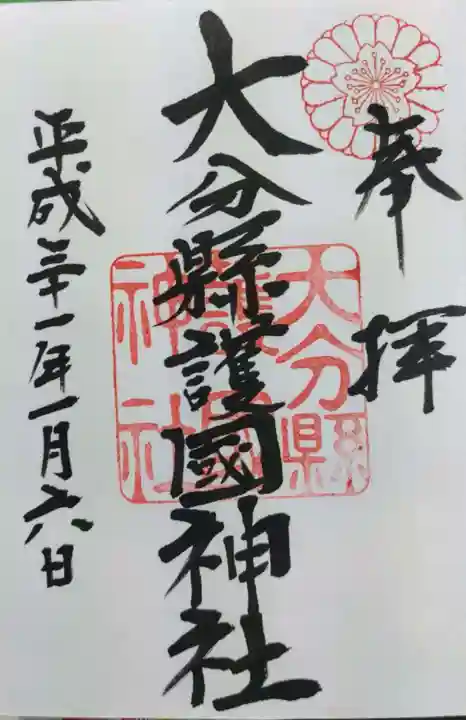 奉拝
大分縣護國神社
大分縣
護國
神社
平成三十一年一月六日